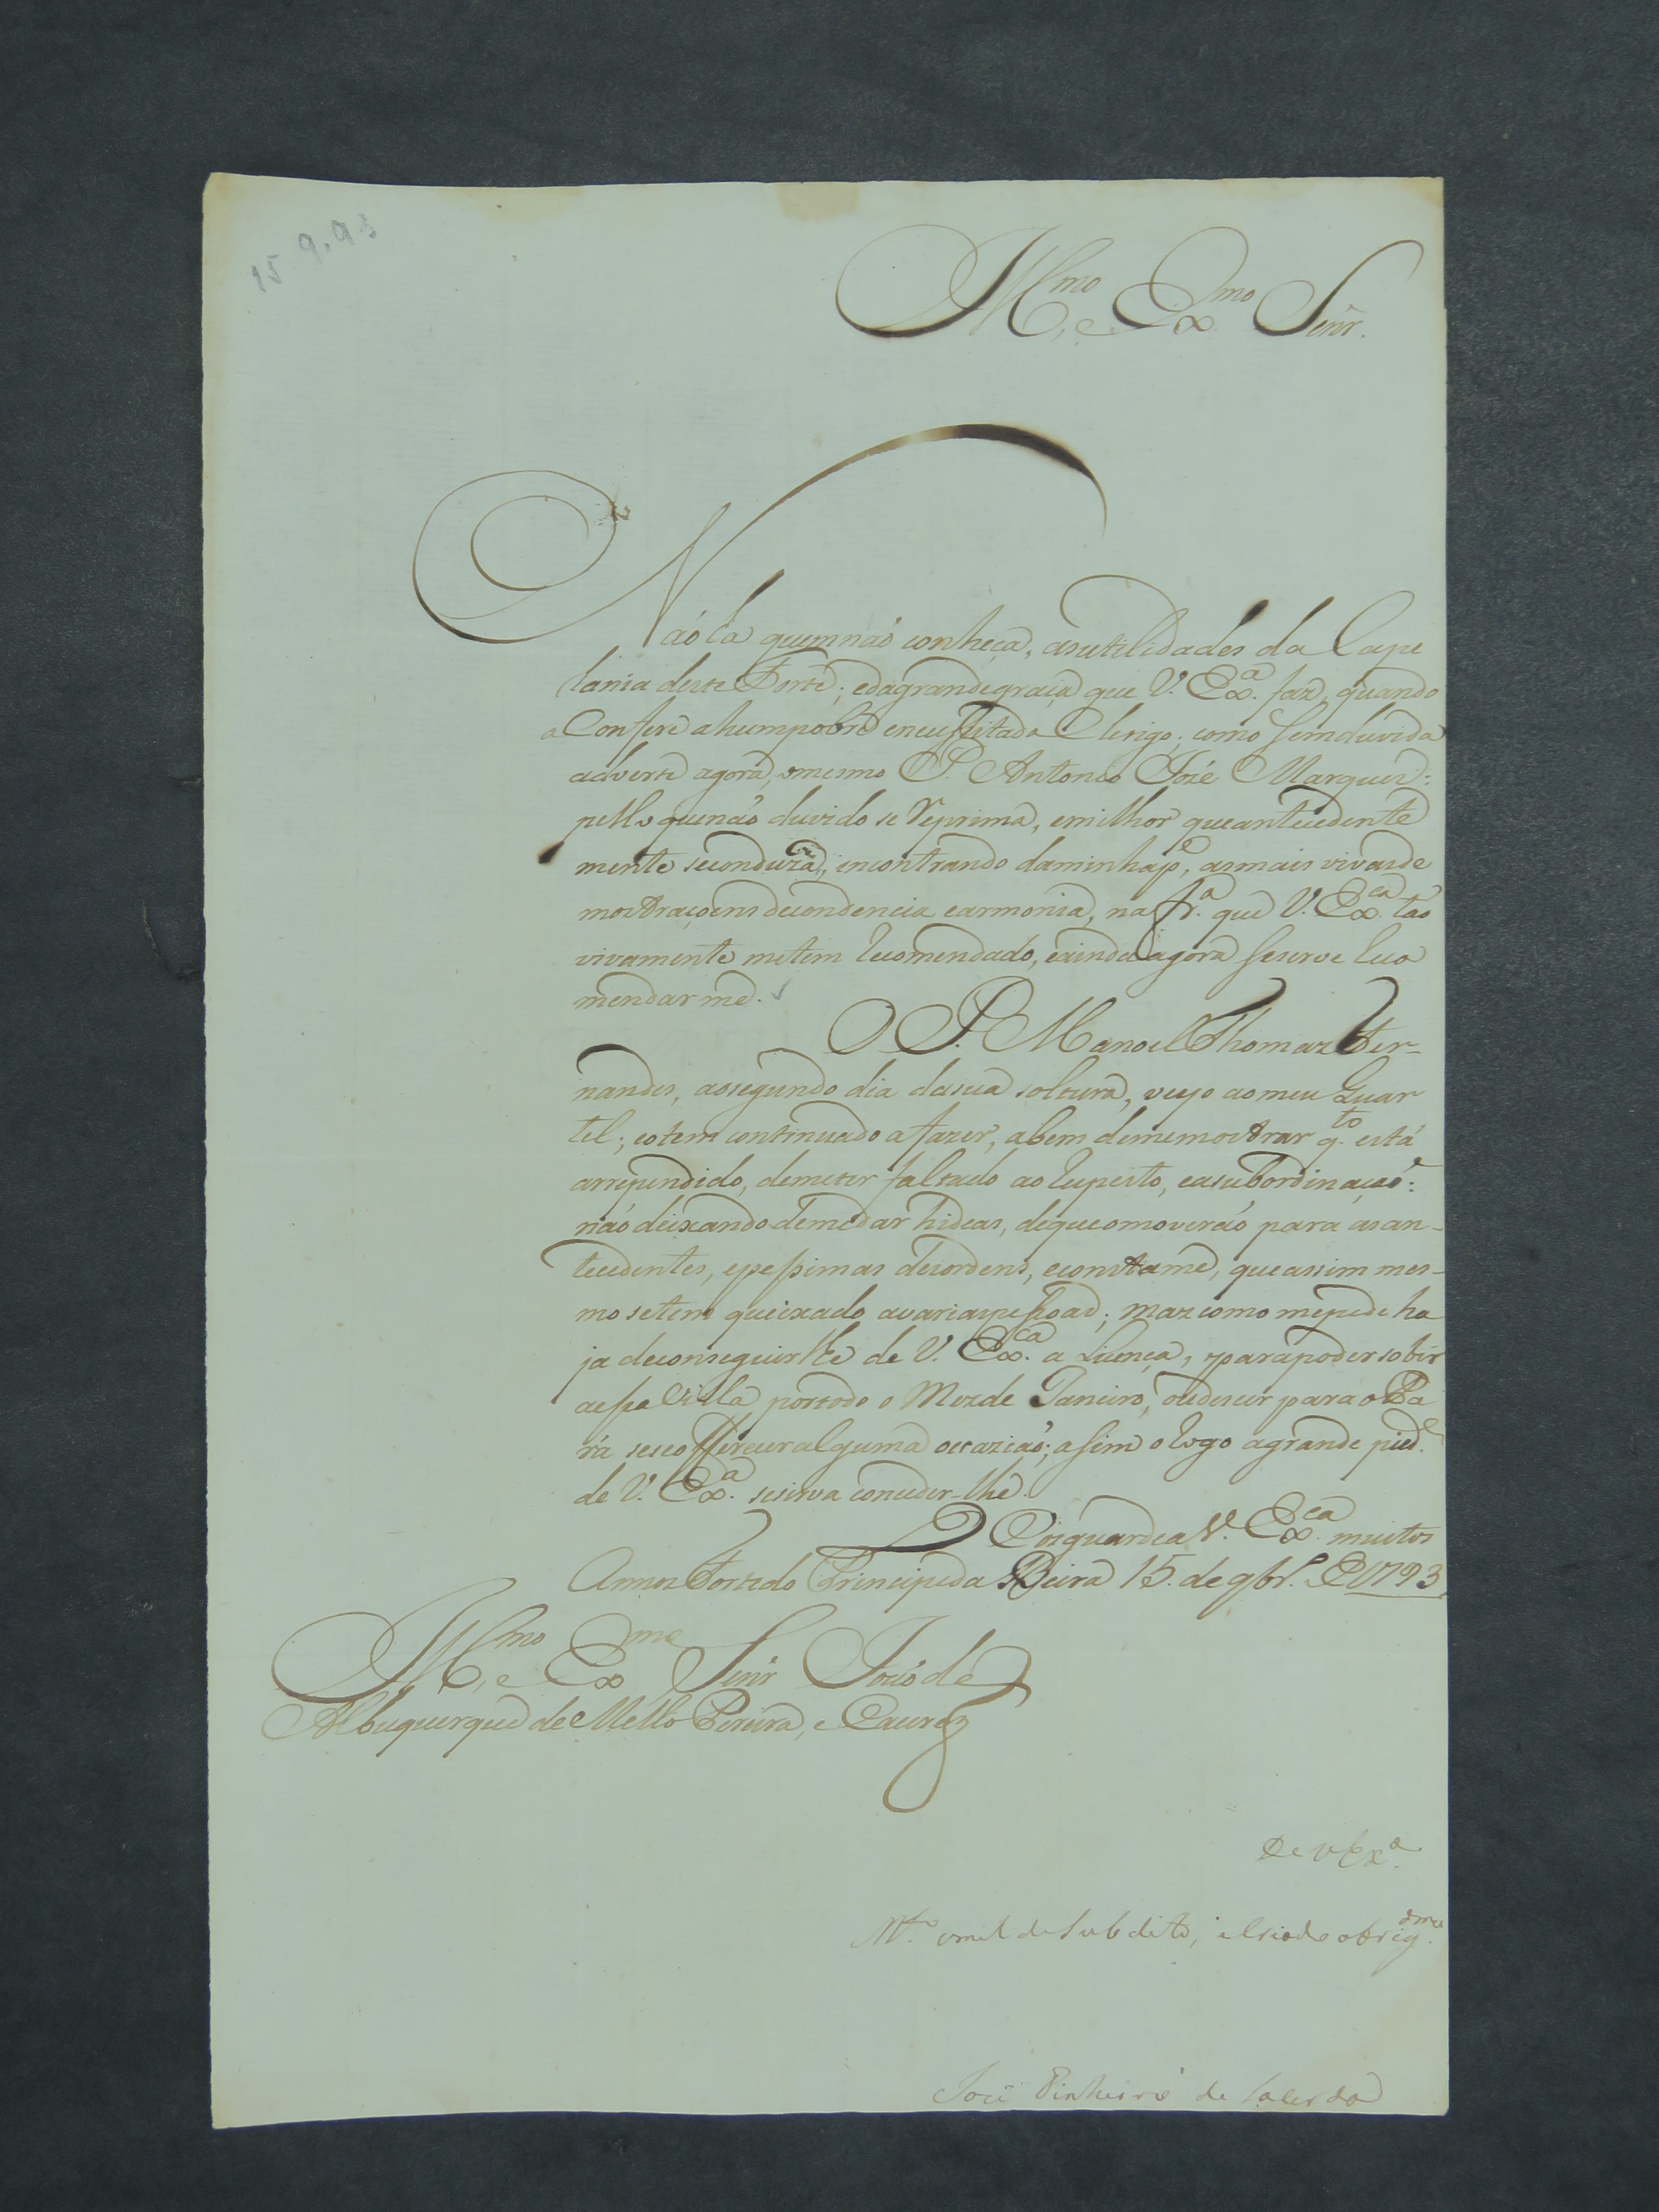 15 9.93
Ill.mo, e Ex.mo Senr.
Naó há quem naó conheça, as utilidades da Cape
lania deste Forte; e da grande graça que V. Ex.a faz, quando
a Confere a hum pobre e necessitado Clerigo; como sem duvida
adverte agora, o mesmo P. Antonio José Marques:
pello que naó duvido se reprima, e milhor que antecedente
mente se conduza, encontrando da minha p.e, as mais vivas de
mostraçoens de condencia e armonia, na fr.a que V. Ex.ca tao
vivamente me tem recomendado, e ainda agora se serve reco
mendar me.
O P. Manoel Thomaz Fer-
nandes, ao segundo dia da sua soltura, veyo ao meu Quar
tel; e o tem continuado a fazer, a bem de me mostrar q.to está
arrependido, de me ter faltado ao respeito, e a subordinaçaó:
naó deixando de me dar hideas, de que o moveraó para as an-
tecedentes, e pessimas desordens, e consta me, que assim mes-
mo se tem queixado a varias pessoas; mas como me pede ha
ja de conseguir lhe de V. Ex.ca a Licença, para poder sobir
a essa Villa por todo o Mez de Janeiro, ou descer para o Pa
rá se se offerecer alguma occaziaó; assim o rogo a grande pied.e
de V. Ex.a se sirva conceder-lhe.
Deos guarde a V. Ex.ca muitos
Annos Forte do Principe da Beira 15. de 9br.o de 1793
Ill.mo, e Ex.mo Senr Joaó de
Albuquerque de Mello Pereira, e Caceres
De V Ex.a
M.to umilde subdito, e criado obrig.dmo
José Pinheiro de Lacerda